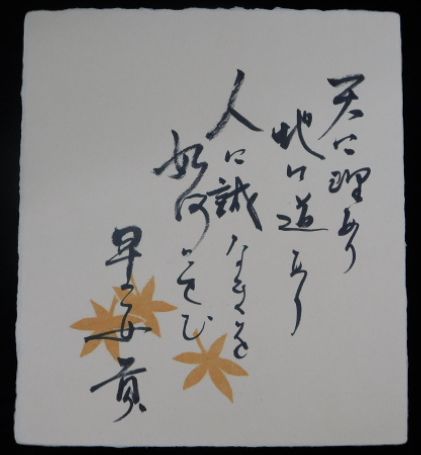 天に理あり
地に道あり
人に誠なきを
如何にせむ
早乙女貢